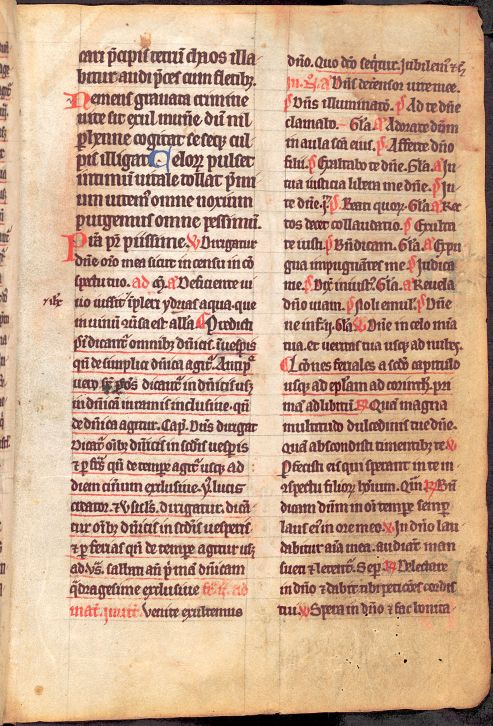 cari p̄cipis tetrū ch̄aos illa
bitur audi p̄ces cum fletibꝫ.
Ne mens grauata crimine
uite sit exul mun̄e. dū nil
p̄henne cogitat seseqꝫ cul
pis illigat. Celoꝝ pulset
intimum uitale tollat p̄mi
um uitemꝰ omne noxium
purgemus omne pessimū.
Pr̄a pr̄ piissime. v̄ Dirigatur
dn̄e or̄o mea sicut incensū in cō
spectu tuo. ad m̄. a Deficiente ui
no iussit ih̄c impleri ydrias aqua. que
in uinū ūsa est alla ¶ Predicti
p̄s dicant̄ omnibꝫ dn̄icis. ī uesp̄is
qn̄ de simplici dn̄ica agit̄.
dicant̄ in dn̄icis usqꝫ
in dn̄icā in ramis inclusiue. qn̄
de dn̄ica agitur. Cap̄. Dn̄s dirigat
dicat̄ oībꝫ dn̄icis in scd̄is uesp̄is
⁊ p̄ fr̄as qn̄ de temp̄e agit̄ usqꝫ ad
diem cinerum exclusiue. ẏ. lucis
creator. ⁊ v̄sicl̄s. dirigatur. dicū
tur oībꝫ dn̄icis in scd̄is uesperis
⁊ p̄ ferias qn̄ de temp̄e agitur usqꝫ
ad v̄s. sabbati an̄ p̄mā dn̄icam
q̄dragesime exclusiue fr̄ ii. ad
mat̄. inuit̄. Venite exultemus
dn̄o. Quo dō seq̄itur. Iubilemꝰ ⁊c̄
In. n̄. a Dn̄s defensor uite mee.
p̄ Dn̄s illuminatō. p̄ Ad te dn̄e
clamabo. Gl̄a. a Adorate dn̄m
in aula scā eius. p̄ Afferte dn̄o
filii. p̄ Exaltabo te dn̄e. Gl̄a. a In
tua iusticia libera me dn̄e. p̄ In
te dn̄e. p̄. p̄ Beati quoꝝ. Gl̄a. a Rec
tos decet collaudatio. p̄ Exulta
te iusti. p̄ Bn̄dicam. Gl̄a. a Expu
gna impugnātes me. p̄ Iudica
me. p̄ Dix̄ iniustꝰ. Gl̄a. a Reuela
dn̄o uiam. p̄ Noli emul̄. p̄ Dn̄e
ne in f̄. ii. Gl̄a. v̄ Dn̄e in celo mīa
tua. et ueritas tua usqꝫ ad nubes.
¶ Lc̄ones feriales a scd̄o capitulo
usqꝫ ad ep̄lam ad corinth̄. pri
mā ad libitū. R̄ Quā magna
multitudo dulcedinis tue dn̄e.
Quā abscondisti timentibꝫ te. v̄
Perfecisti eis qui sperant in te in
ꝯspectu filioꝝ hōium. Quā. R̄ Bn̄
dicam dn̄m in ōi temp̄e semp̄
laus eiꝰ in ore meo. v̄ In dn̄o lau
dabitur aīa mea. audiāt man
sueti ⁊ letent̄. Semp̄. R̄ Delectare
in dn̄o ⁊ dabit tibi peticōes cordis
tui. v̄ Spera in dn̄o ⁊ fac bonita